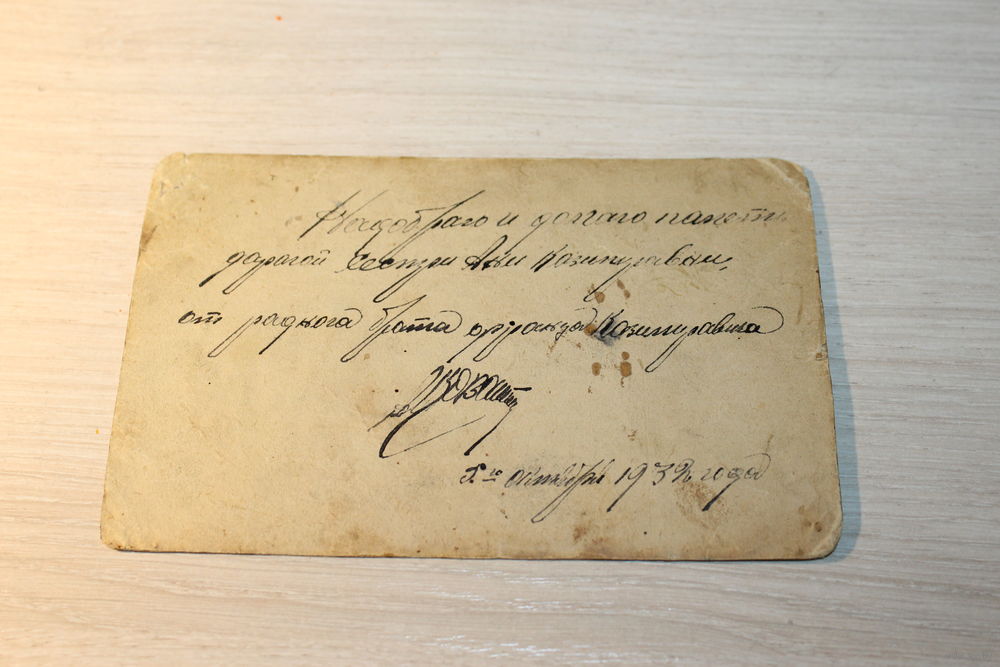 На добраго и долгаго паметь
дарагой сестры Ани Казимуравни,
от раднога брата Франца Казимуравича
5го октября 1932 года